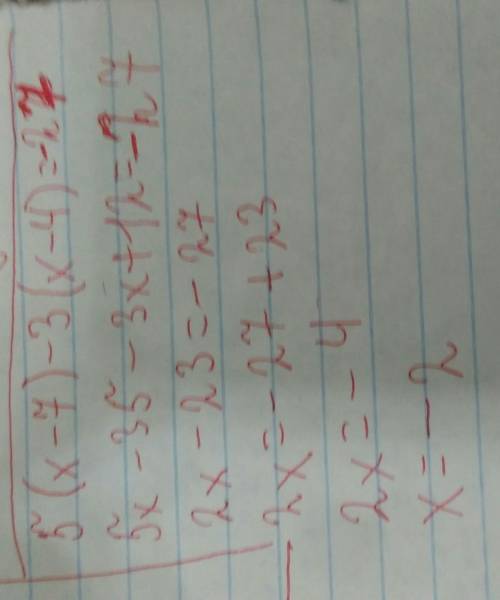 5(x-7)-3(x-4)=-27
5x-35-3x+12=-27
2x-23=-27
2x=-27+23
2x=-4
x=-2